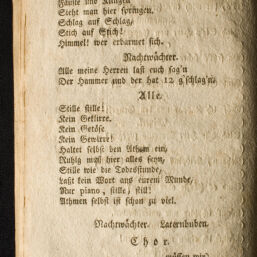 Fäuste und Klingen
Sieht man hier springen,
Schlag auf Schlag,
Stich auf Stich!
Himmel! wer erbarmet sich.
Nachtwächter.
Alle meine Herren laßt euch sag'n
Der Hammer und der hat 12 g'schlag'n.
Alle.
Stille stille!
Kein Geklirre,
Kein Getöse
Kein Gewirre!
Haltet selbst den Athem ein,
Ruhig muß hier alles seyn,
Stille wie die Todesstunde,
Laßt kein Wort aus eurem Munde,
Nur piano, stille, still!
Athmen selbst ist schon zu viel.
Nachtwächter. Laternbuben.
Chor.
müssen wir